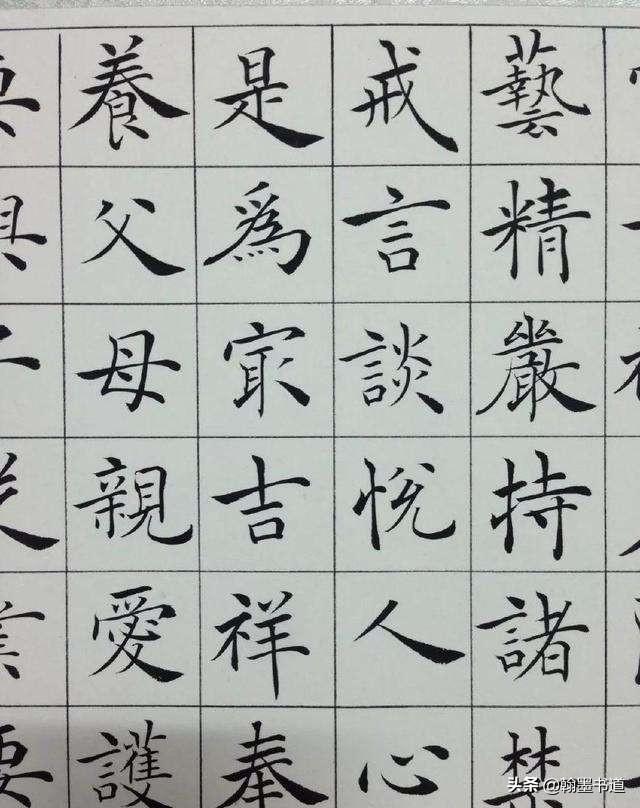 藝精嚴持諸禁
戒言談悅人心
是爲㝡吉祥奉
養父母親愛護
头条 @翰墨书道